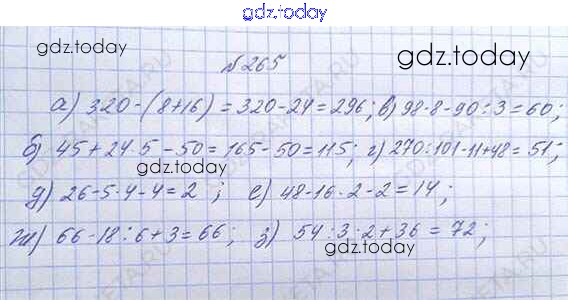 gdz.today
gdz.today gdz.today
№265
а) 320-(8+16)=320-24=296; в) 98-8-90:3=60;
б) 45+24·5-50=165-50=115; г) 270:101-11+48=51;
gdz.today
д) 26-5·4-4=2; е) 48-16·2-2=14;
ж) 66-18:6+3=66; з) 54:3·2+36=72;
gdz.today